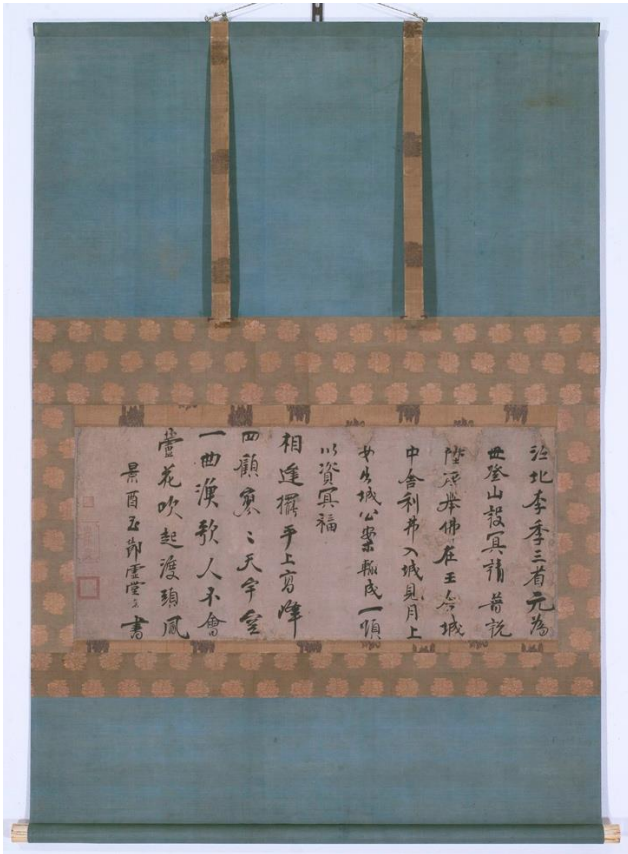 江北李季三省元為
母登山設冥請普説
陞座挙佛在王舎城
中舎利弗入城見月上
女出城公案輙成一頌
以資冥福
相逢擺手上高峰
四顧寥〻天宇空
一曲漁歌人不會
蘆花吹起渡頭風
景酉 虚堂叟書